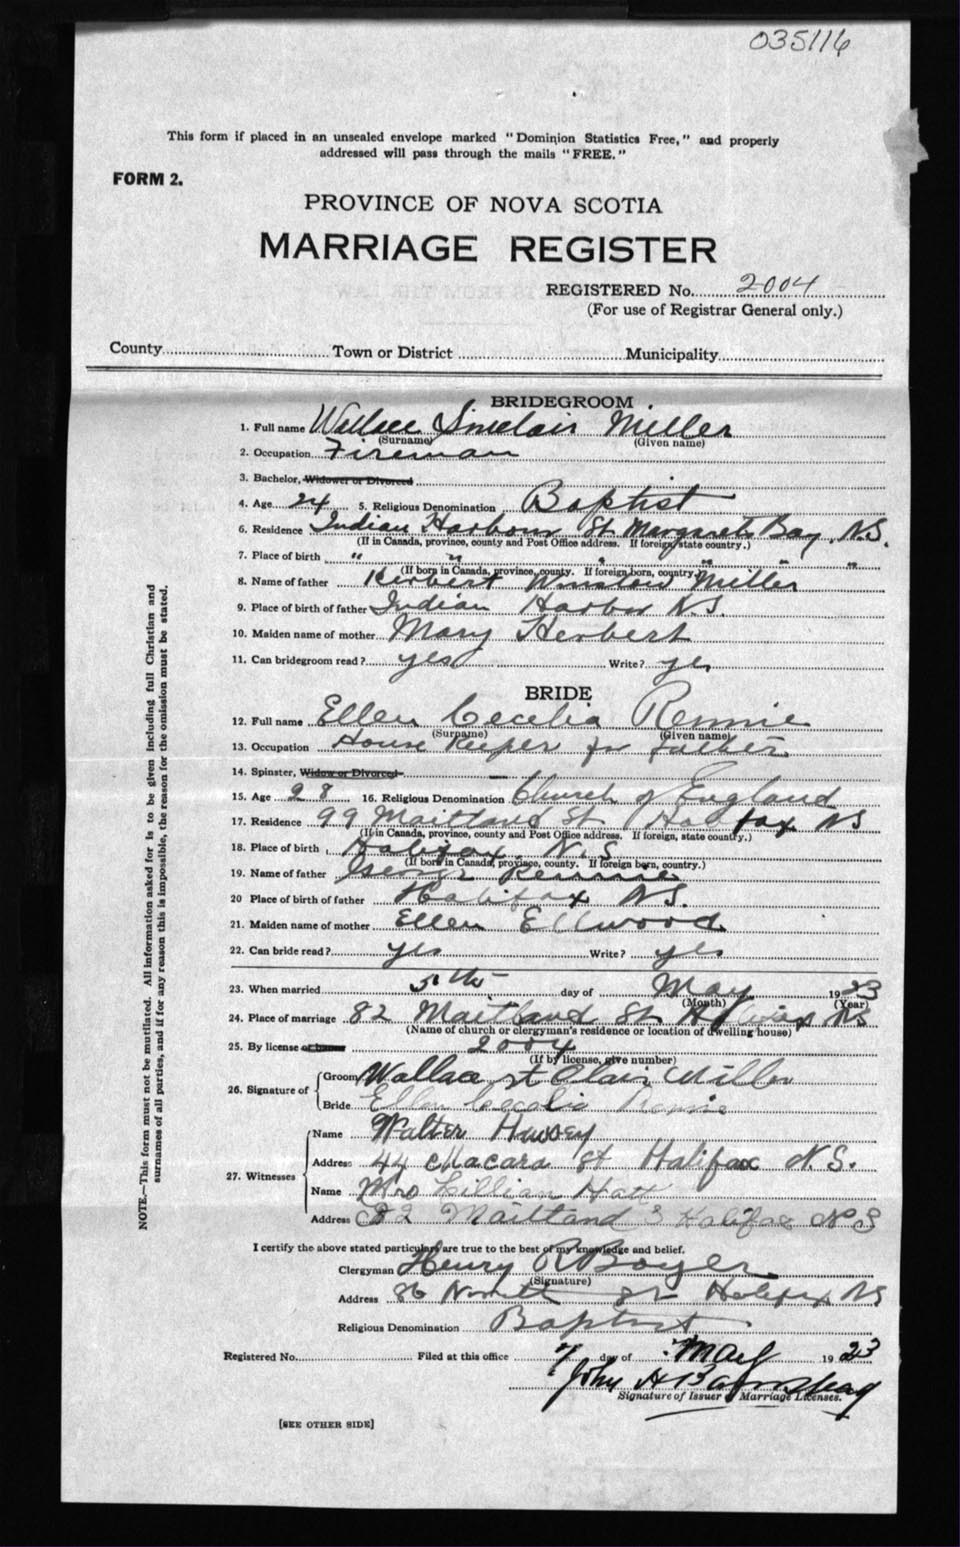 035116
This form if placed in an unsealed envelope marked "Dominion Statistics Free," and properly
addressed will pass through the mails "FREE."
FORM 2.
PROVINCE OF NOVA SCOTIA
MARRIAGE REGISTER
REGISTERED No. 2004
(For use of Registrar General only.)
County Town or District Municipality
BRIDEGROOM
1. Full name Wallace Sinclair Miller
(Surname) (Given name)
2. Occupation Fireman
3. Bachelor, Widower or Divorced
4. Age 24 5. Religious Denomination Baptist
6. Residence Indian Harbour St. Margarets Bay, N.S.
(If in Canada, province, county and Post Office address. If foreign, state country.)
7. Place of birth " " " " "
(If born in Canada, province, county. If foreign born, country.)
8. Name of father Herbert Winslow Miller
9. Place of birth of father Indian Harbor N.S.
10. Maiden name of mother Mary Herbert
11. Can bridegroom read? yes Write? yes
BRIDE
12. Full name Ellen Cecelia Rennie
(Surname) (Given name)
13. Occupation House Keeper for father
14. Spinster, Widow or Divorced
15. Age 28 16. Religious Denomination Church of England
17. Residence 99 Maitland St Halifax NS
(If in Canada, province, county and Post Office address. If foreign, state country.)
18. Place of birth Halifax N.S.
(If born in Canada, province, county. If foreign born, country.)
19. Name of father George Rennie
20 Place of birth of father Halifax N.S.
21. Maiden name of mother Ellen Ellwood
22. Can bride read? yes Write? yes
23. When married 5th day of May 1923
(Month) (Year)
24. Place of marriage 82 Maitland St Halifax NS
(Name of church or clergyman's residence or location of dwelling house)
25. By license or banns 2004
(If by license, give number)
26. Signature of Groom Wallace St Clair Miller
Bride Ellen Cecelia Rennie
27. Witnesses
Name Walter Hussey
Address 44 Macara St Halifax N.S.
Name Mrs Lillian Hatt
Address 82 Maitland S Halifax N S
I certify the above stated particulars are true to the best of my knowledge and belief.
Clergyman Henry R Boyer
(Signature)
Address 86 North St Halifax NS
Religious Denomination Baptist
Registered No. Filed at this office 7 day of May 1923
John A
Signature of Issuer of Marriage Licenses.
[SEE OTHER SIDE]
NOTE.—This form must not be mutilated. All information asked for is to be given including full Christian and
surnames of all parties, and if for any reason this is impossible, the reason for the omission must be stated.